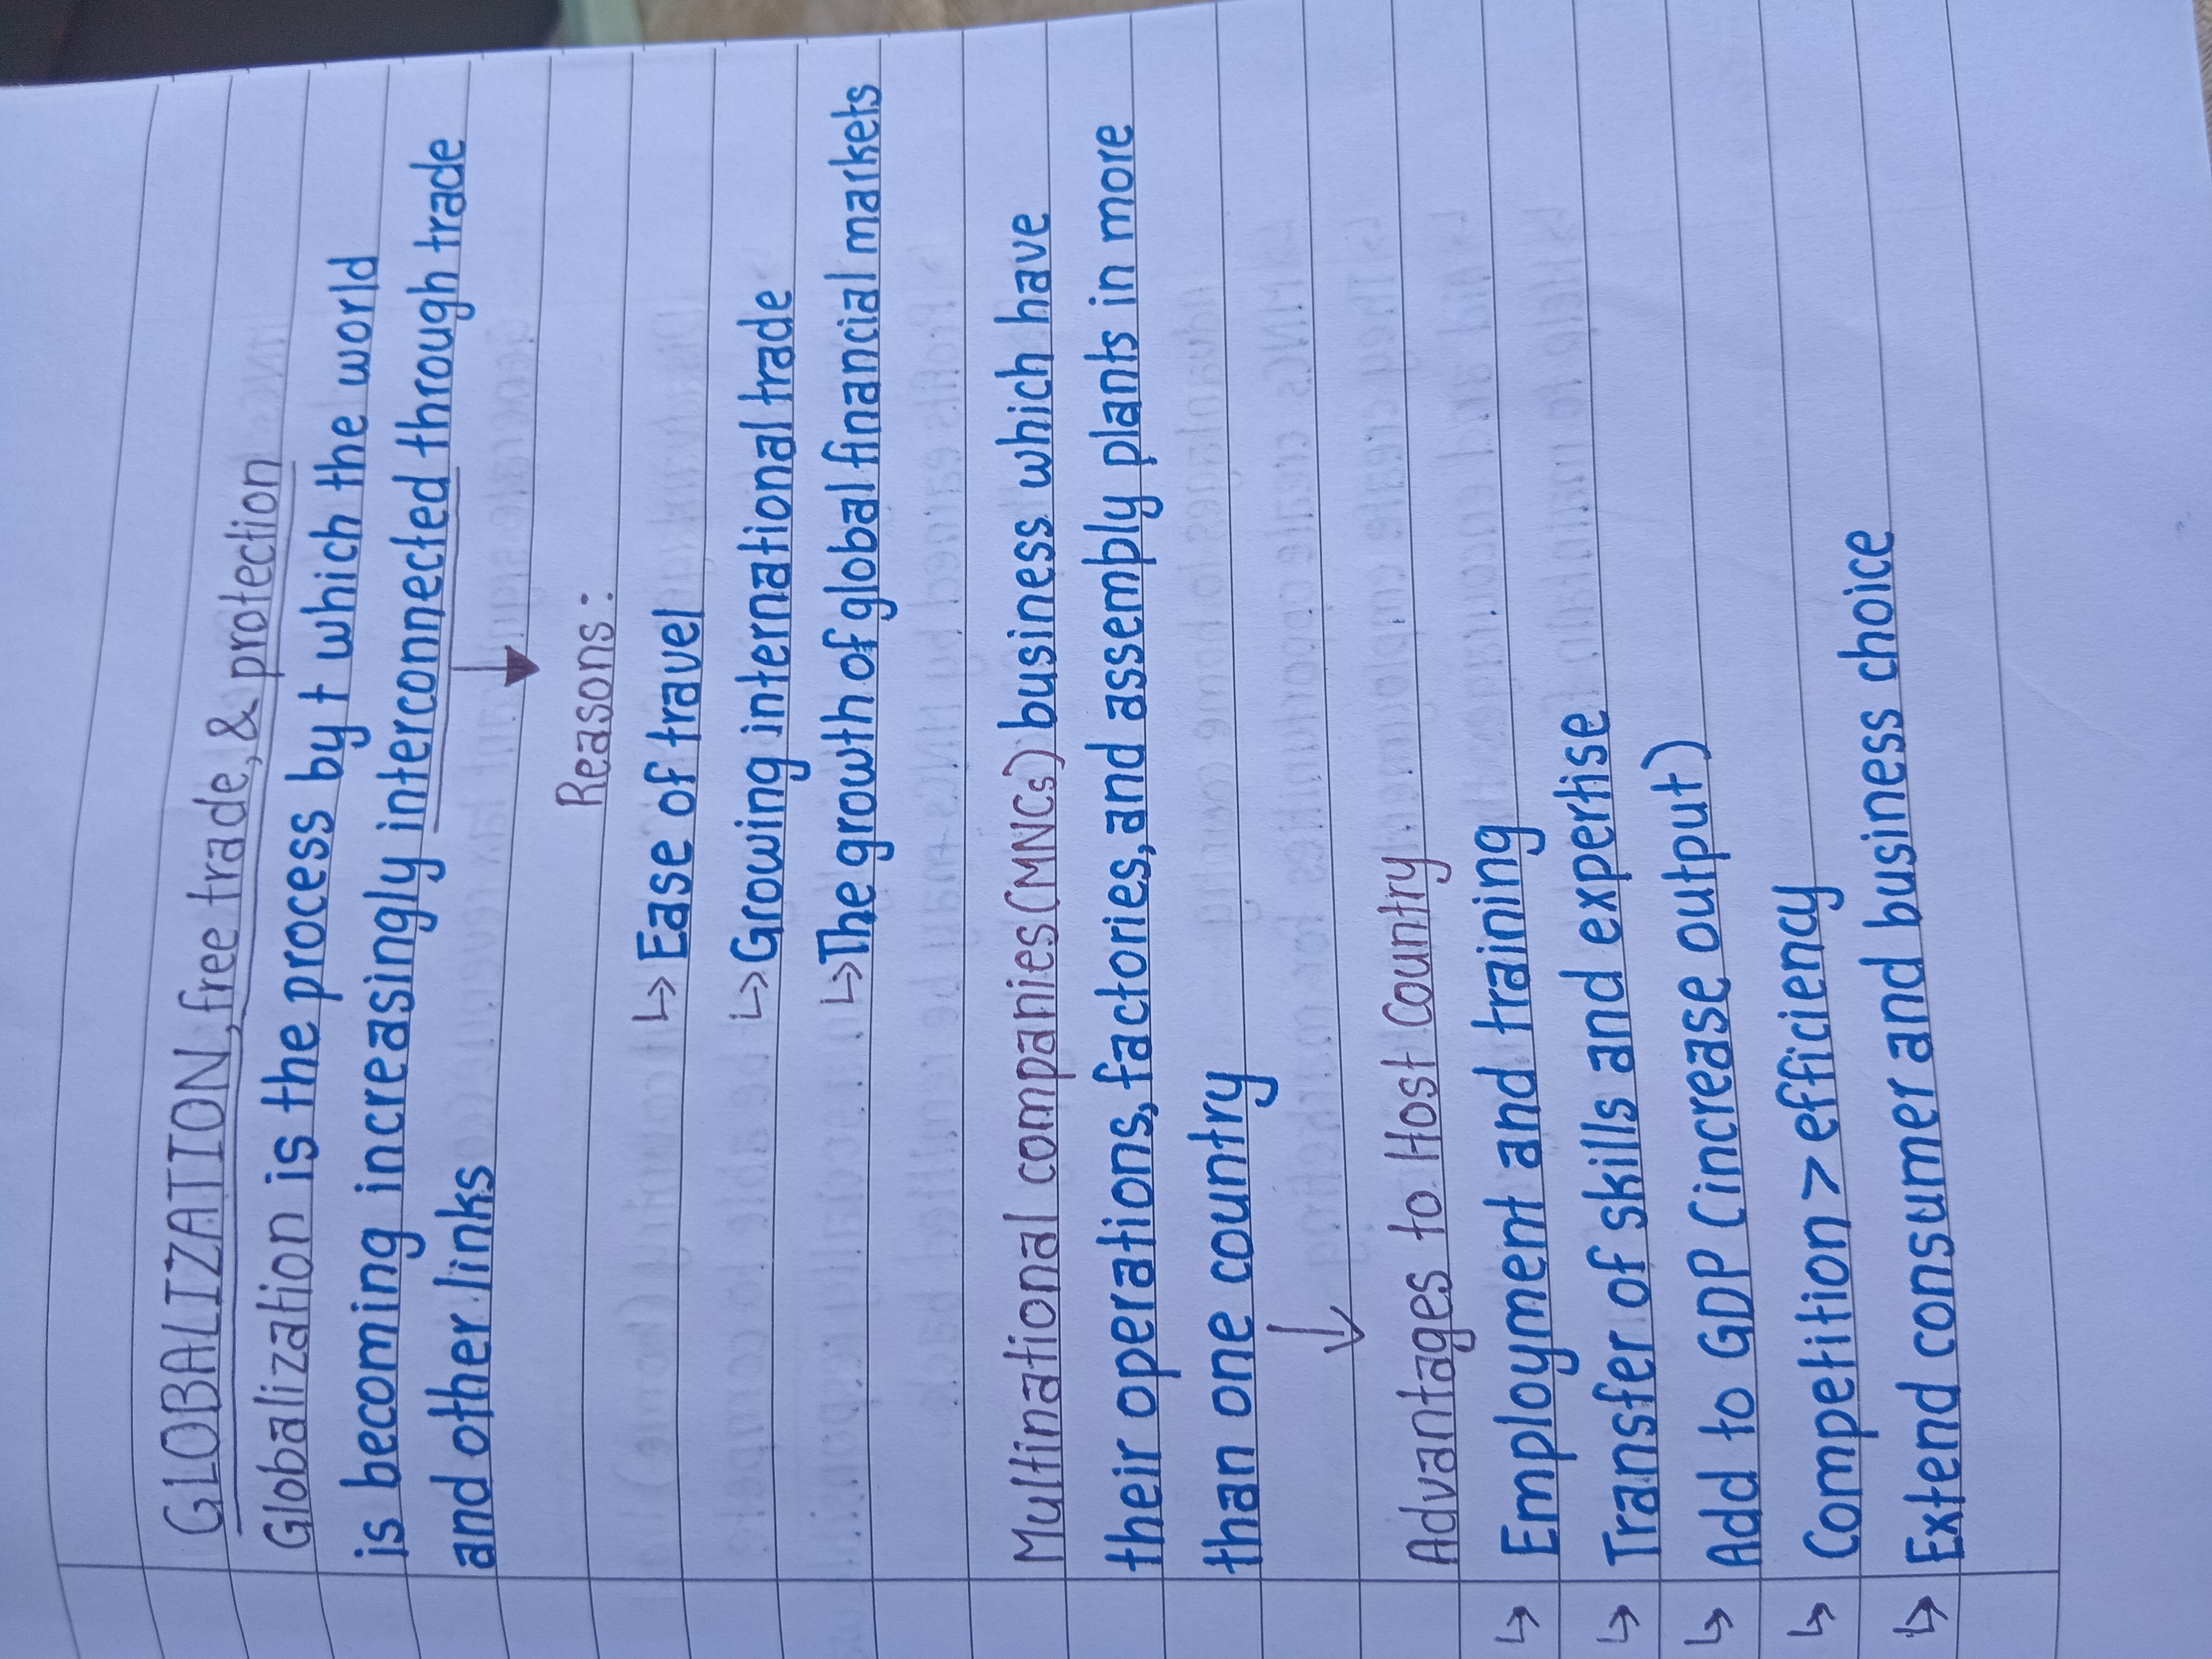 GLOBALIZATION, free trade, & protection
Globalization is the process by t which the world
is becoming increasingly interconnected through trade
and other links
Reasons:
↳ Ease of travel
↳ Growing international trade
↳ The growth of global financial markets
Multinational companies (MNCs) business which have
their operations, factories, and assembly plants in more
than one country
↓
Advantages to Host Country
↳ Employment and training
↳ Transfer of skills and expertise
↳ Add to GDP (increase output)
↳ Competition > efficiency
↳ Extend consumer and business choice